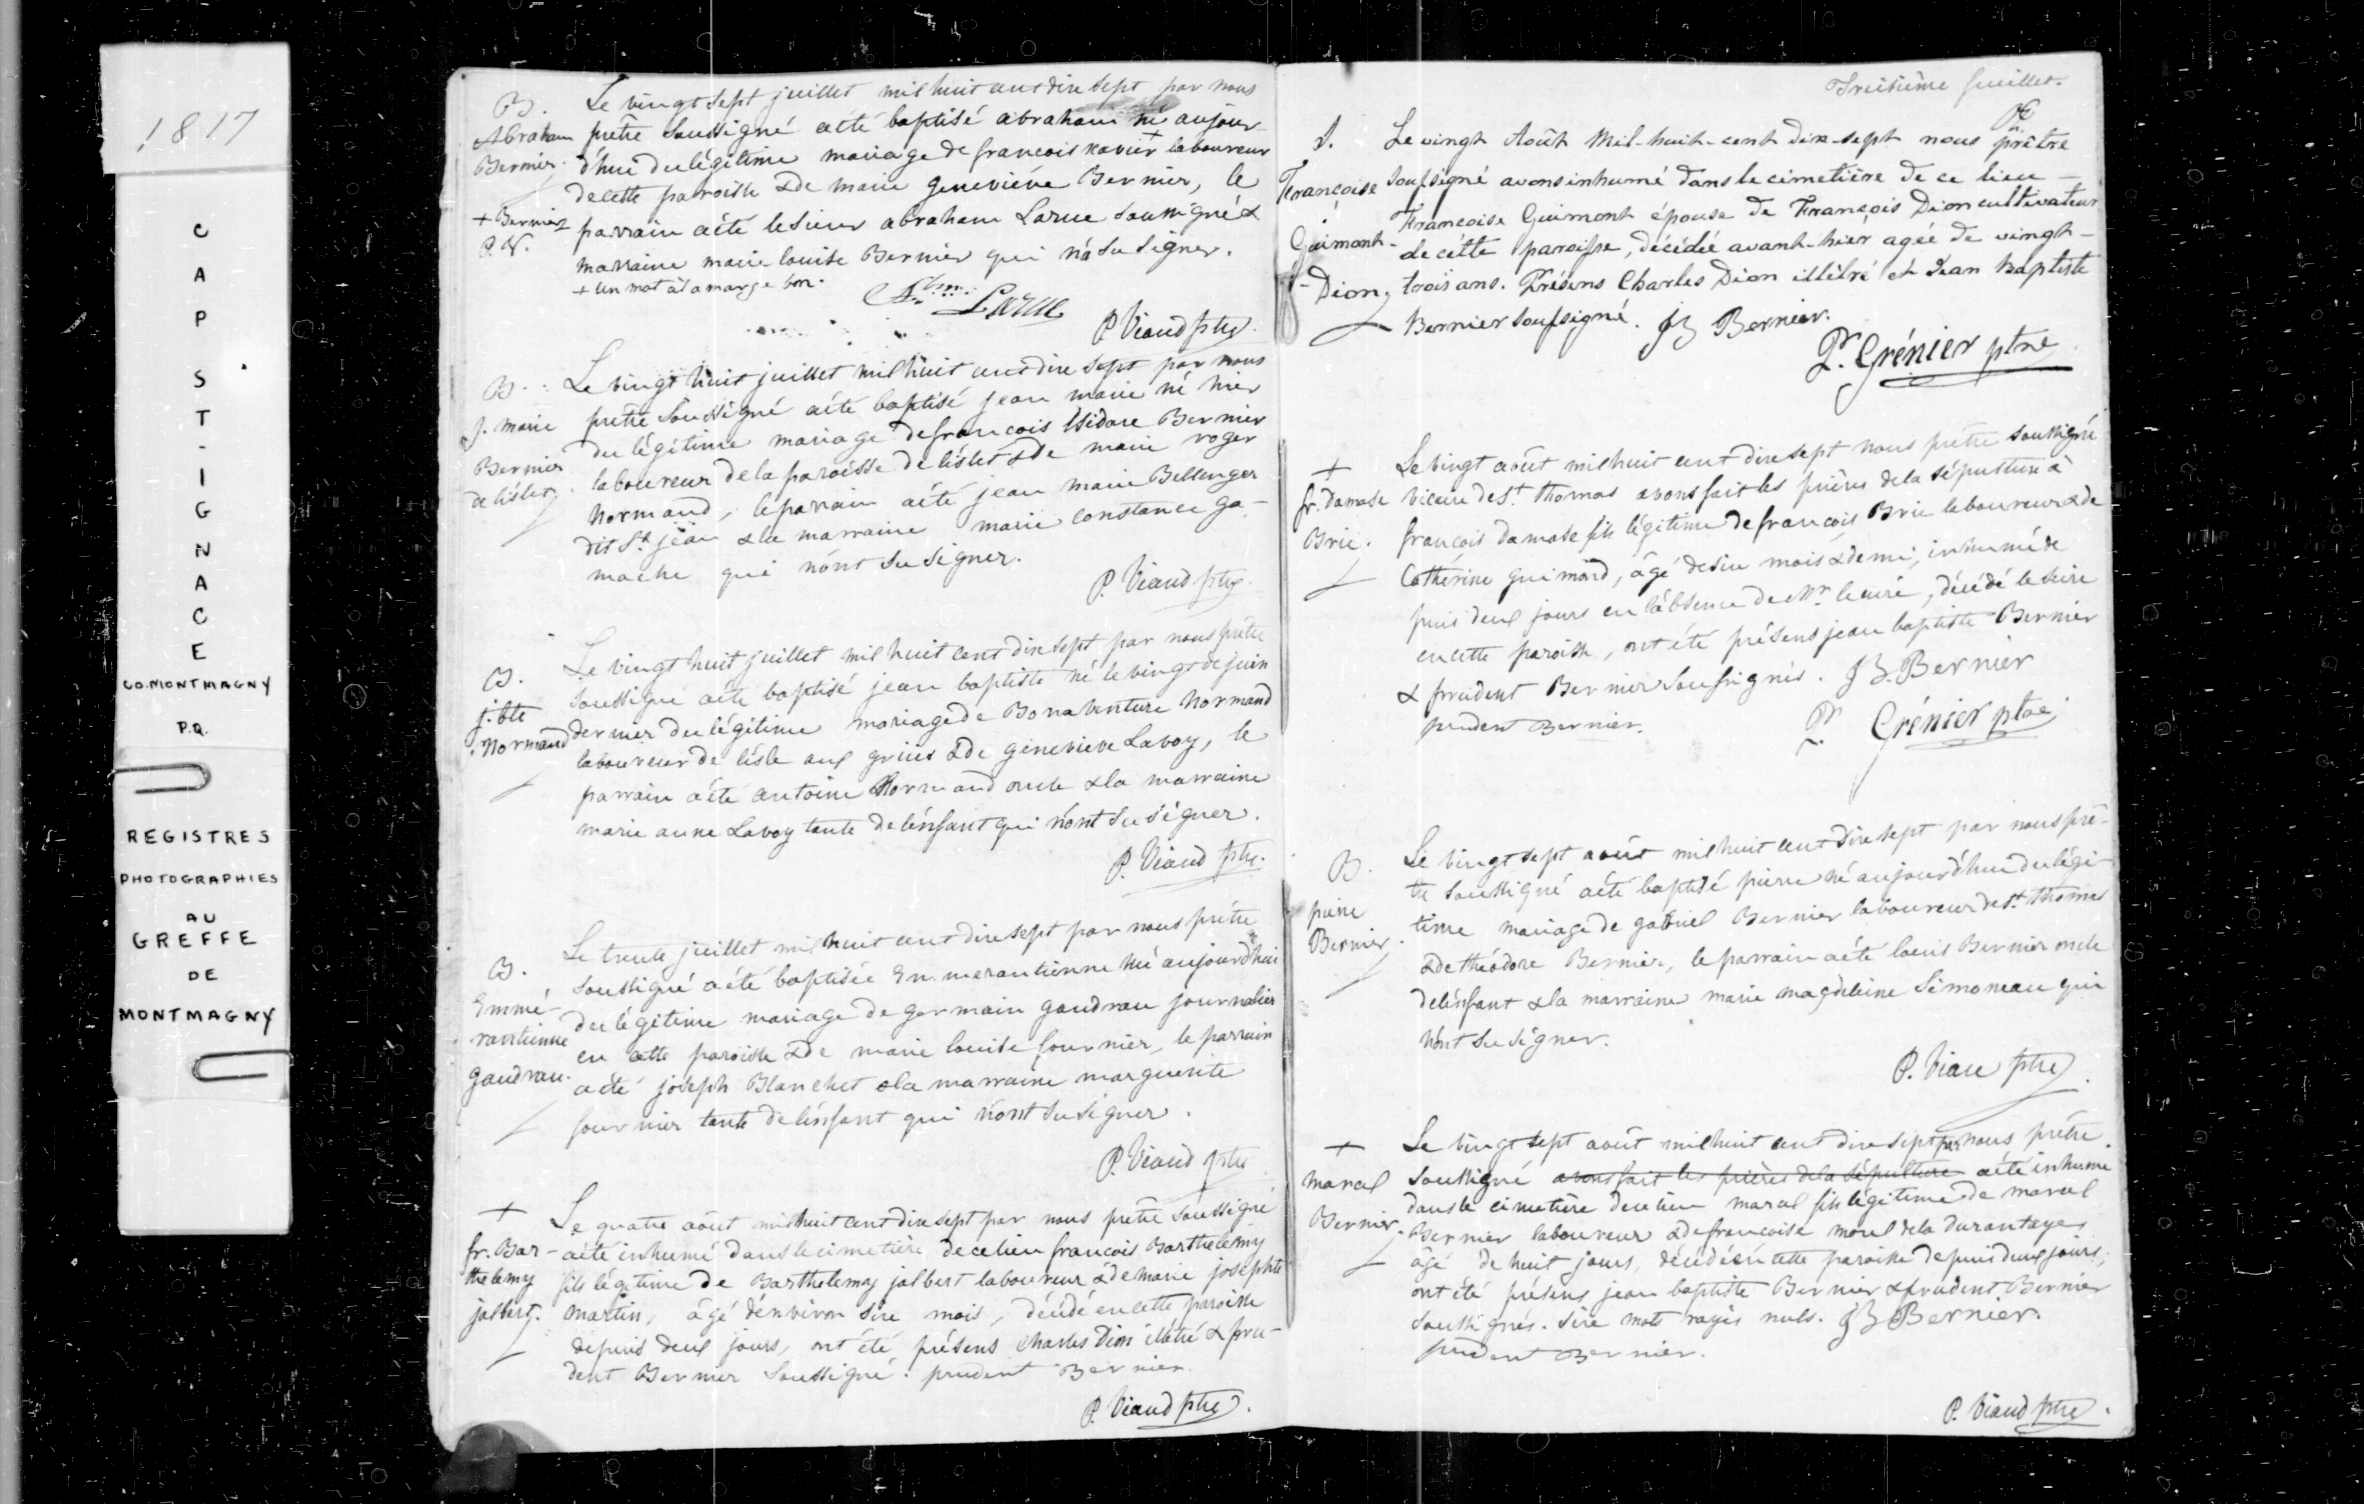 1817
CAP ST-IGNACE
CO. MONTMAGNY
P.Q.
REGISTRES
PHOTOGRAPHIES
AU
GREFFE
DE
MONTMAGNY
B.
Abraham
Bernier.
+ Bernier
P. V.
Le vingt sept juillet mil huit cent dixe sept par nous
prêtre soussigné a été baptisé abraham né aujour
d'hui du légitime mariage de francois xavier + laboureur
de cette paroisse & de marie geneviéve Bernier, le
parrain a été le sieur abraham Larue soussigné &
marraine marie louise Bernier qui n'a su signer.
+ un mot à la marge bon.
Abm. Larue
P. Viaud ptre
B.
j. marie
Bernier
de l'islet
Le vingt huit juillet mil huit cent dixe sept par nous
prêtre soussigné a été baptisé jean marie né hier
du légitime mariage de francois Isidore Bernier
laboureur de la paroisse de l'islet & de marie roger
Normand, le parrain a été jean marie Bellenger
dit St. jean & la marraine marie constance ga-
mache qui n'ont su signer.
P. Viaud ptre
B.
j. bte
Normand
Le vingt huit juillet mil huit cent dix sept par nous prêtre
soussigné a été baptisé jean baptiste né le vingt de juin
dernier du légitime mariage de Bonaventure Normand
laboureur de l'isle aux grües & de genevieve Lavoy, le
parrain a été antoine Normand oncle & la marraine
marie anne Lavoy tante de l'enfant qui n'ont su signer.
P. Viaud ptre.
B.
Emmé-
rantienne
gaudreau.
Le trente juillet mil huit cent dixe sept par nous prêtre
soussigné a été baptisée Emmerantienne née aujourd'hui
du légitime mariage de germain gaudreau journalier
en cette paroisse & de marie louise fournier, le parrain
a été joseph Blanchet & la marraine marguerite
fournier tante de l'enfant qui n'ont su signer.
P. Viaud ptre
+
fr. Bar-
thelemy
jalbert.
Le quatre août mil huit cent dixe sept par nous prêtre soussigné
a été inhumé dans le cimetière de ce lieu francois Barthelemy
fils légitime de Barthelemy jalbert laboureur & de marie josephte
Martin, âgé d'environ sixe mois, décédé en cette paroisse
depuis deux jours, ont été présens Charles Dion illétré & pru-
dent Bernier soussigné. prudent Bernier
P. Viaud ptre.
Treizième feuillet.
S.
Françoise
Guimont-
-Dion.
Le vingt Août Mil-huit-cent dix-sept nous prêtre
soussigné avons inhumé dans le cimetière de ce lieu —
Françoise Guimont épouse de François Dion cultivateur
de cette paroisse, décédée avant-hier agée de vingt-
trois ans. Présens Charles Dion illétré et Jean Baptiste
Bernier soussigné. JB Bernier.
Pr. Grénier ptre
+
fr. Damase
Brie.
Le vingt août mil huit cent dixe sept nous prêtre soussigné
vicaire de St. thomas avons fait les prières de la sépulture à
francois damase fils légitime de francois Brie laboureur & de
Catherine guimond, âgé de sixe mois & demi, inhumé de
puis deux jours en l'absence de Mr. le curé, décédé le seize
en cette paroisse, ont été présens jean baptiste Bernier
& prudent Bernier soussignés. JB. Bernier
prudent Bernier.
Pr. Grénier ptre
B.
pierre
Bernier.
Le vingt sept août mil huit cent dixe sept par nous prê-
tre soussigné a été baptisé pierre né aujourd'hui du légi-
time mariage de gabriel Bernier laboureur de St. thomas
& de théodore Bernier, le parrain a été louis Bernier oncle
de l'enfant & la marraine marie magdeleine Simoneau qui
n'ont su signer.
P. Viau ptre
+
Marcel
Bernier.
Le vingt sept août mil huit cent dixe sept par nous prêtre
soussigné avons fait les prières de la sépulture a été inhumé
dans le cimetière de ce lieu marcel fils légitime de marcel
Bernier laboureur & de francoise morel de la durantaye
âgé de huit jours, décédé en cette paroisse depuis deux jours,
ont été présens jean baptiste Bernier & prudent Bernier
soussignés. sixe mots rayés nuls. JB Bernier.
prudent Bernier.
P. Viaud ptre.